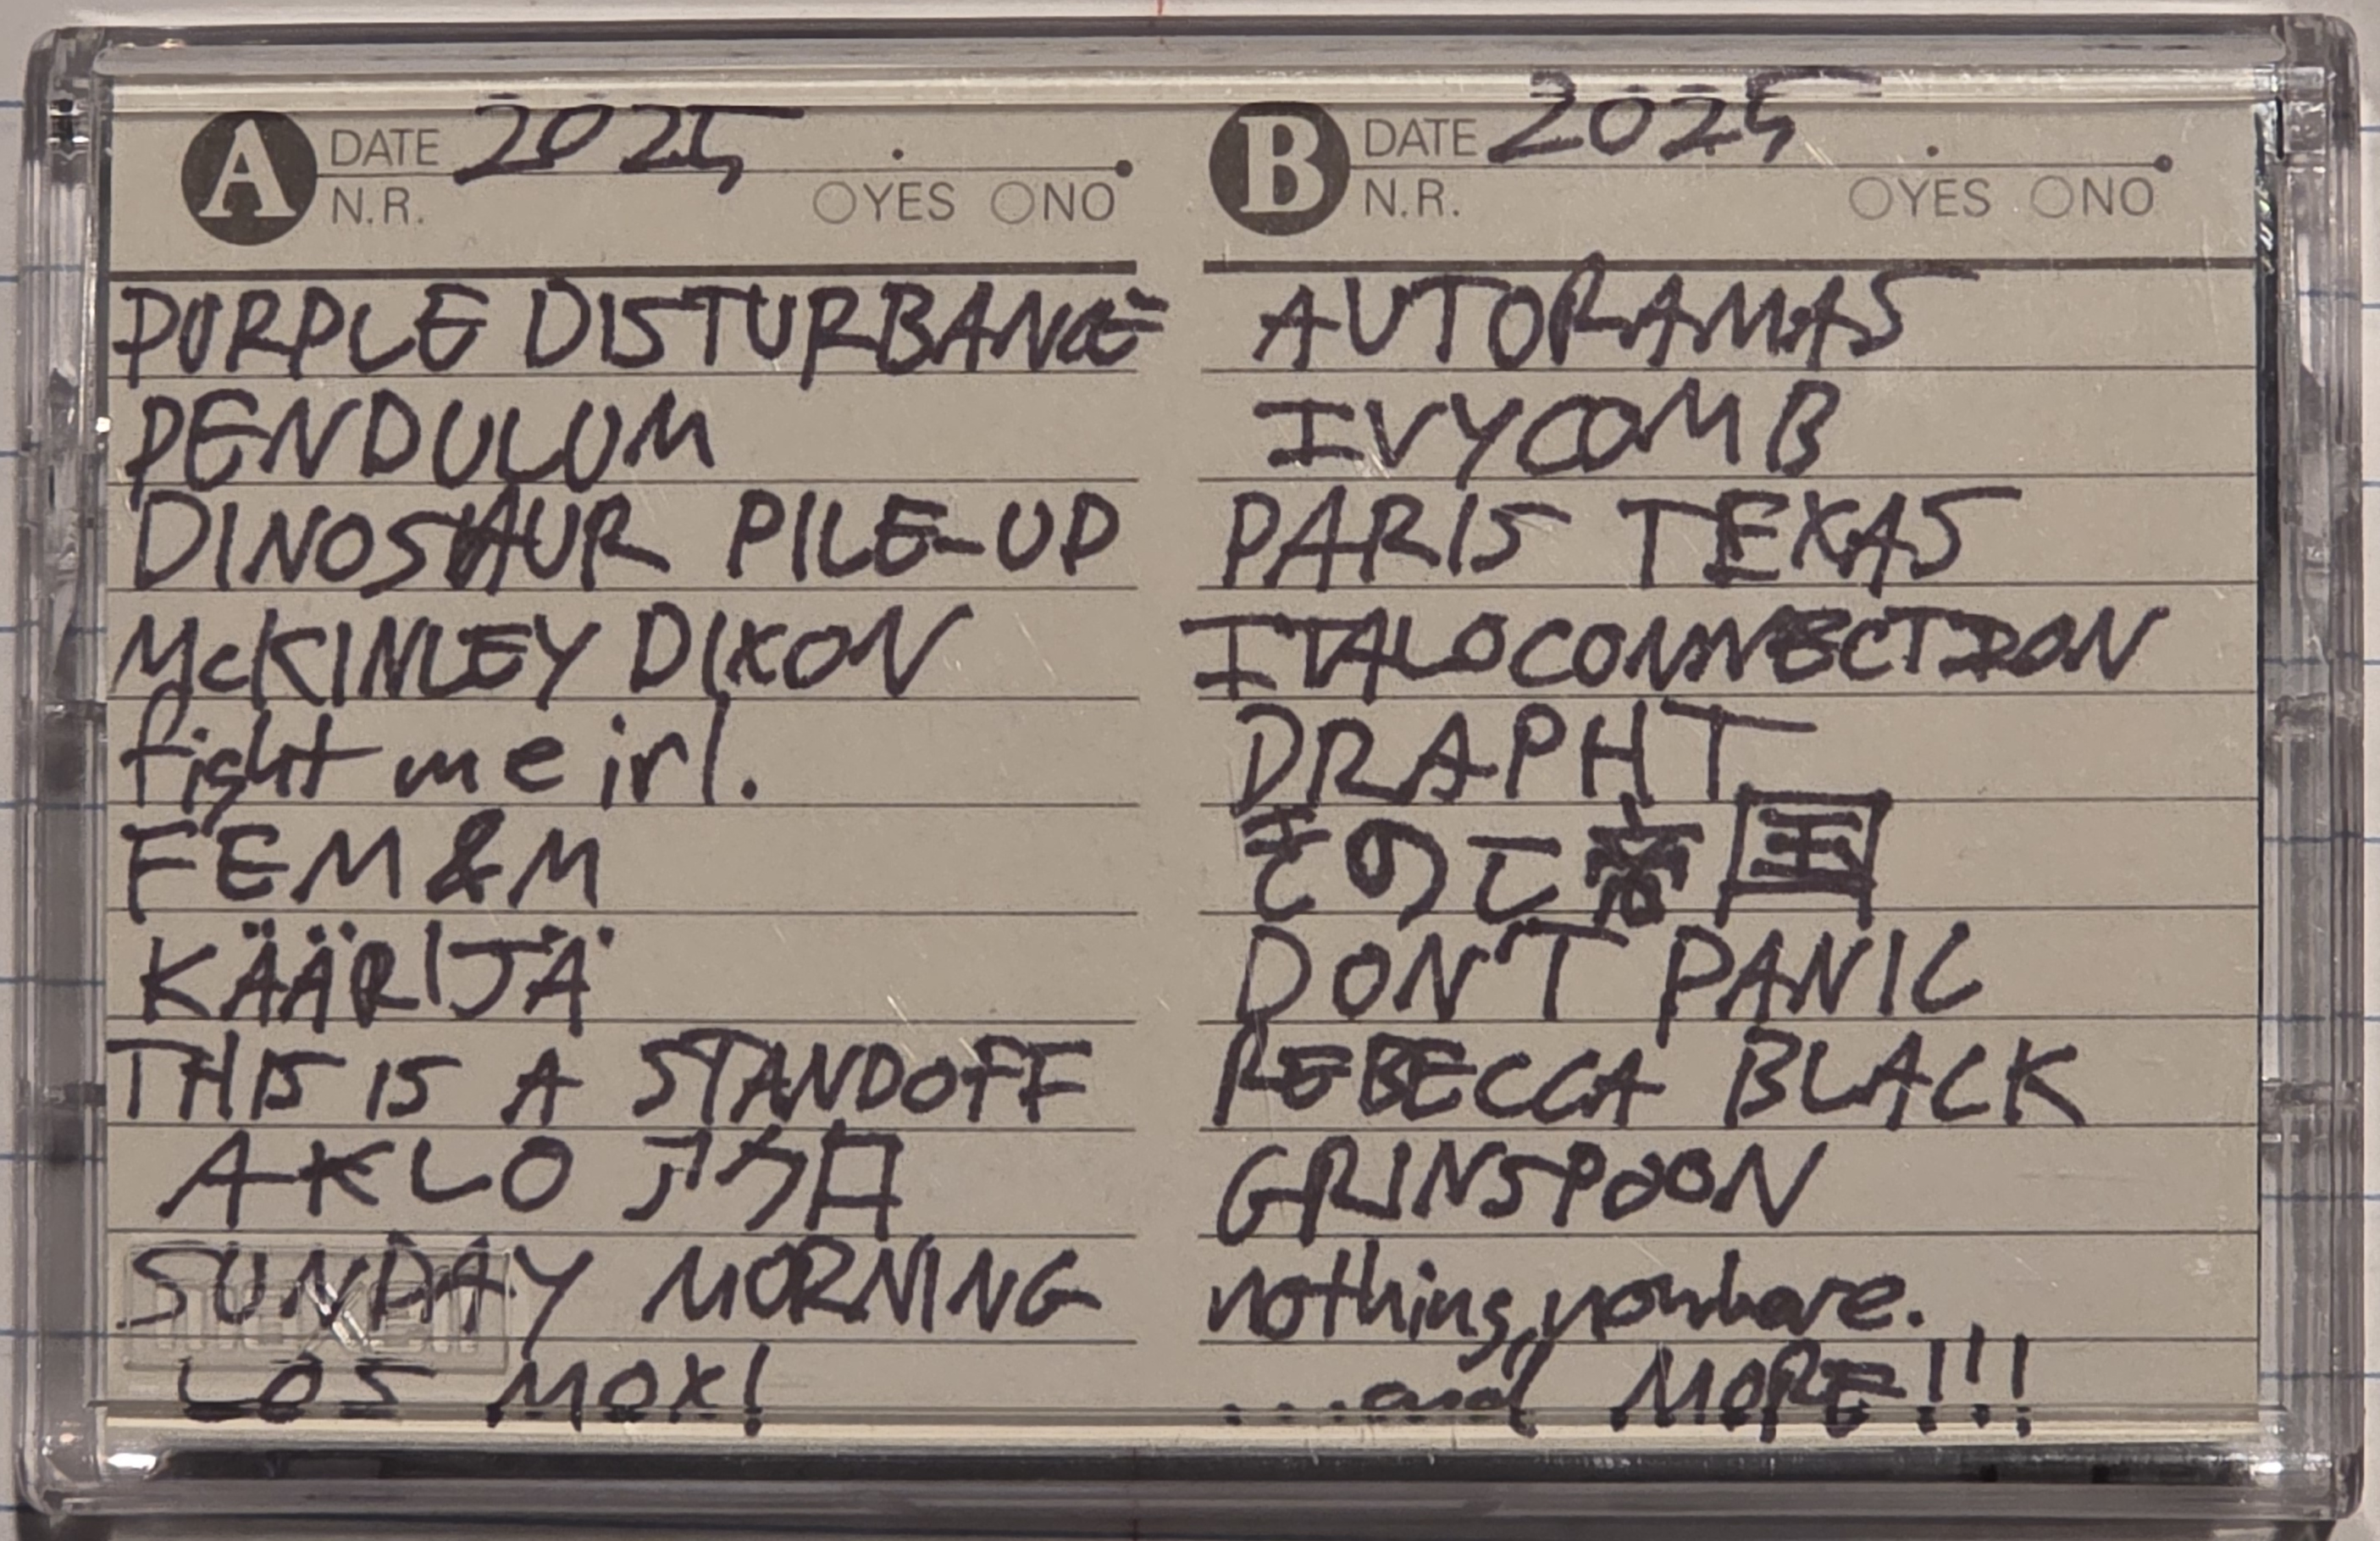 A DATE 2025
N.R. YES NO
PURPLE DISTURBANCE
PENDULUM
DINOSAUR PILE-UP
McKINLEY DIXON
fight me irl.
FEM&M
KÄÄRIJÄ
THIS IS A STANDOFF
AKLO アクロ
SUNDAY MORNING
LOS MOX!
maxell
B DATE 2025
N.R. YES NO
AUTORAMAS
IVYCOMB
PARIS TEXAS
ITALOCONNECTION
DRAPHT
きのこ帝国
DON'T PANIC
REBECCA BLACK
GRINSPOON
nothing,nowhere.
...and MORE!!!